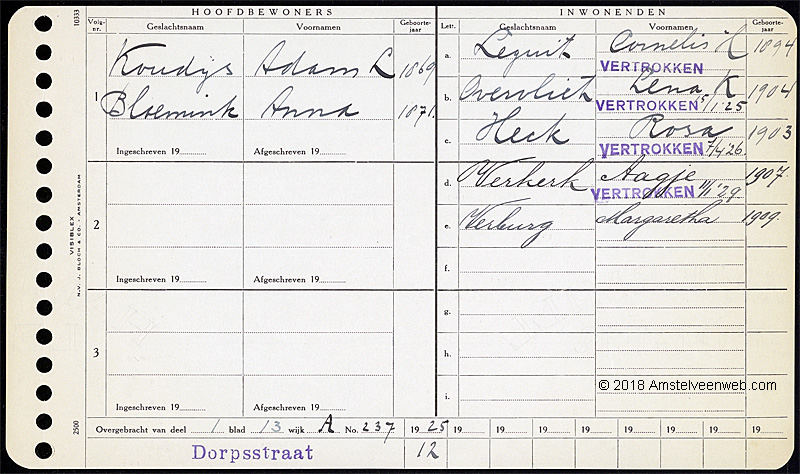 HOOFDBEWONERS
INWONENDEN
10333
Volg-nr.
Geslachtsnaam
Voornamen
Geboorte-jaar
Lett.
Geslachtsnaam
Voornamen
Geboorte-jaar
1
Koudijs Adam L 1869
Bloemink Anna 1871.
Ingeschreven 19......... Afgeschreven 19.........
2
Ingeschreven 19......... Afgeschreven 19.........
3
Ingeschreven 19......... Afgeschreven 19.........
a. Leguit Cornelis H 1894
VERTROKKEN
b. Overvliet Lena K 1904
VERTROKKEN 5/1'25
c. Heck Rosa 1903
VERTROKKEN 7/4'26.
d. Verkerk Aagje 1907.
VERTROKKEN 11/1'29.
e. Verburg Margaretha 1909.
f.
g.
h.
i.
VISIBLEX
N.V. J. BLOCH & CO. AMSTERDAM
2500
© 2018 Amstelveenweb.com
Overgebracht van deel 1 blad 13 wijk A No. 237 1925 19 19 19 19 19 19 19 19
Dorpsstraat 12